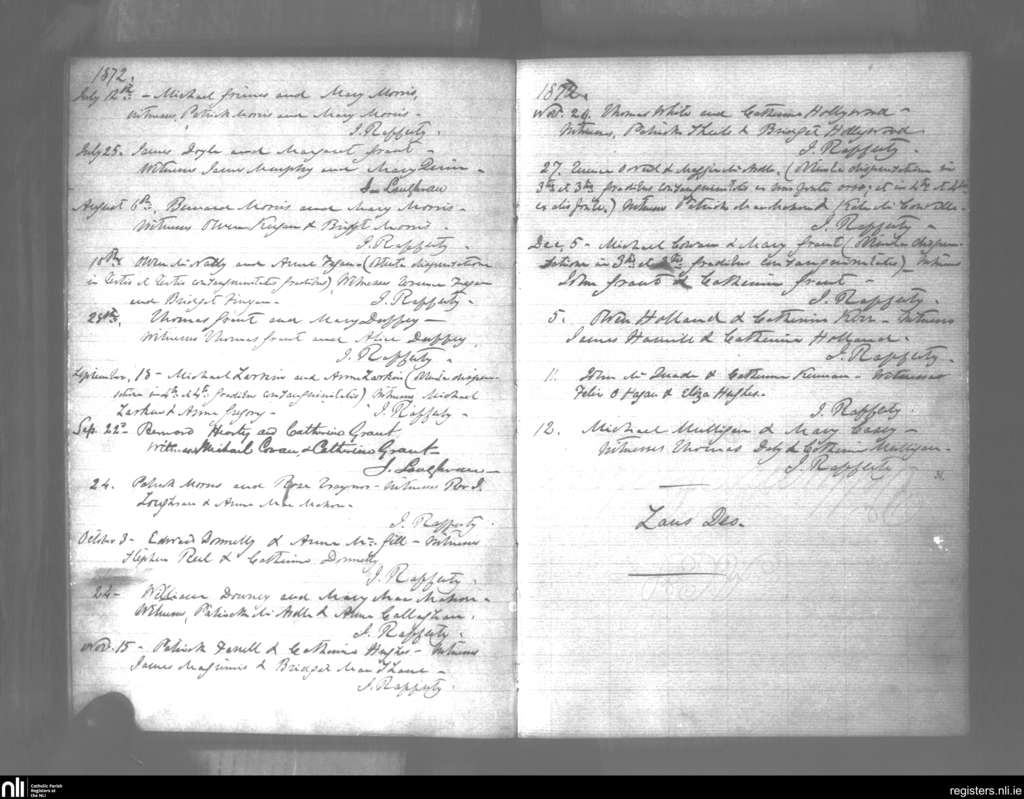 1872.
July 12th - Michael Grimes and Mary Morris,
Witnesses, Patrick Morris and Mary Morris -
J. Rafferty.
July 25. James Doyle and Margaret Grant -
Witnesses James Murphy and Mary Quin -
Jn Loughran
August 6th. Bernard Morris and Mary Morris -
Witnesses Owen Kugan & Bridget Morris -
J. Rafferty -
18th. Owen McNally and Anne Fegan - (Obtenta dispensatione
in tertio et tertio consanguinitatis gradibus). Witnesses Terence
and Bridget Finegan - J. Rafferty -
28th. Thomas Grant and Mary Duffey -
Witnesses Thomas Grant and Alice Duffey
J. Rafferty -
September, 18 - Michael Larkin and Anne Larkin (Obtenta dispen-
satione in 4to et 4to gradibus consanguinitatis) Witnesses Michael
Larkin & Anne Gregory - J. Rafferty -
Sep. 22d - Bernard and Catherine Grant
Witnesses Michael Cowan & Catherine Grant
J. Loughran -
24. Patrick Morris and Rose Traynor - Witnesses Rev J.
Loughran & Anne MacMahon -
J. Rafferty.
October 8 - Edward Donnelly & Anne McGill - Witnesses
Stephen & Catherine Donnelly
J. Rafferty.
24 - William Downey and Mary MacMahon -
Witnesses, Patrick McArdle & Anne Callaghan.
J. Rafferty.
Nov. 15 - Patrick & Catherine Hughes - Witnesses
James Maginnis & Bridget
J. Rafferty.
1872.
Nov. 24. Thomas White and Catherine Hollywood -
Witnesses, Patrick & Bridget Hollywood
J. Rafferty -
27. Terence O'Neill & McArdle. (Obtenta dispensatione in
3tio et 3tio gradibus consanguinitatis ex una parte et in 4to et 4to
ex alia parte.) Witnesses Patrick MacMahon &
J. Rafferty -
Dec, 5 - Michael Cowan & Mary Grant (Obtenta dispen-
satione in 3tio et gradibus consanguinitatis) Witnesses
John Grant & Catherine Grant -
J. Rafferty.
5. Owen Holland & Catherine Kerr - Witnesses
James Hamill & Catherine Holland -
J. Rafferty -
11. John McQuade & Catherine Keenan - Witnesses
Peter O'Hagan & Eliza Hughes -
J. Rafferty.
12. Michael Mulligan & Mary Casey -
Witnesses Thomas Daly & Catherine Mulligan -
J. Rafferty
31.
Laus Deo.
nli
Catholic Parish
Registers at
the NLI
registers.nli.ie